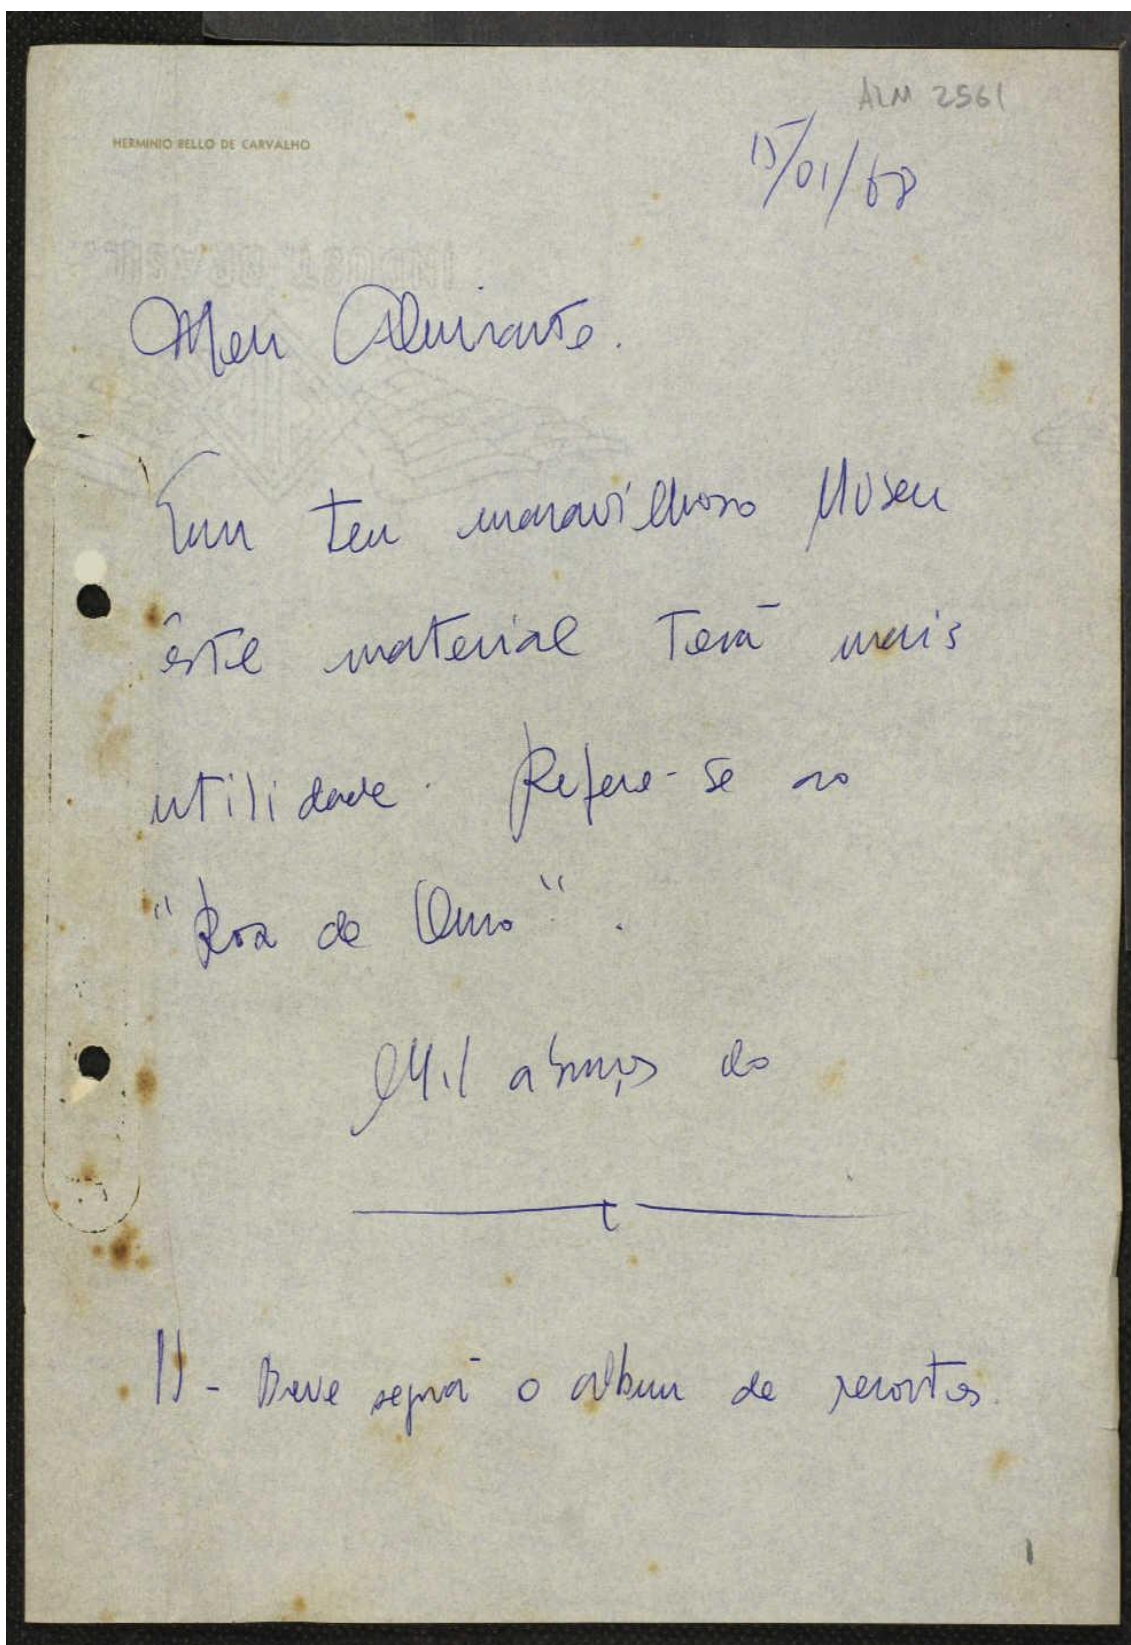 ALM 2561
HERMINIO BELLO DE CARVALHO
15/01/68
Meu Almirante.
Em teu maravilhoso Museu
êste material terá mais
utilidade. Refere-se ao
"Rosa de Ouro".
Mil abraços do
- Breve seguirá o album de recortes.
1